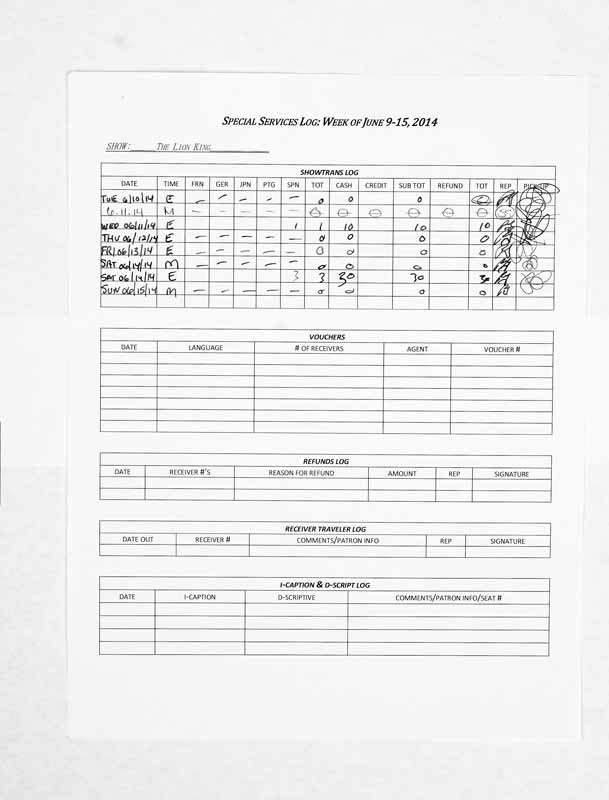 SPECIAL SERVICES LOG: WEEK OF JUNE 9-15, 2014
SHOW: THE LION KING
SHOWTRANS LOG
DATE TIME FRN GER JPN PTG SPN TOT CASH CREDIT SUB TOT REFUND TOT REP PICK-UP
TUE 6/10/14 E – – – – – 0 0 0 0
6.11.14 M – – – – – 0 0 0 0 0 0
WED 06/11/14 E 1 1 10 10 10
THU 06/12/14 E – – – – – 0 0 0 0
FRI 06/13/14 E – – – – – 0 0 0 0
SAT 06/14/14 M – – – – – 0 0 0 0
SAT 06/14/14 E 3 3 30 30 30
SUN 06/15/14 M – – – – – 0 0 0 0
VOUCHERS
DATE LANGUAGE # OF RECEIVERS AGENT VOUCHER #
REFUNDS LOG
DATE RECEIVER #'S REASON FOR REFUND AMOUNT REP SIGNATURE
RECEIVER TRAVELER LOG
DATE OUT RECEIVER # COMMENTS/PATRON INFO REP SIGNATURE
I-CAPTION & D-SCRIPT LOG
DATE I-CAPTION D-SCRIPTIVE COMMENTS/PATRON INFO/SEAT #